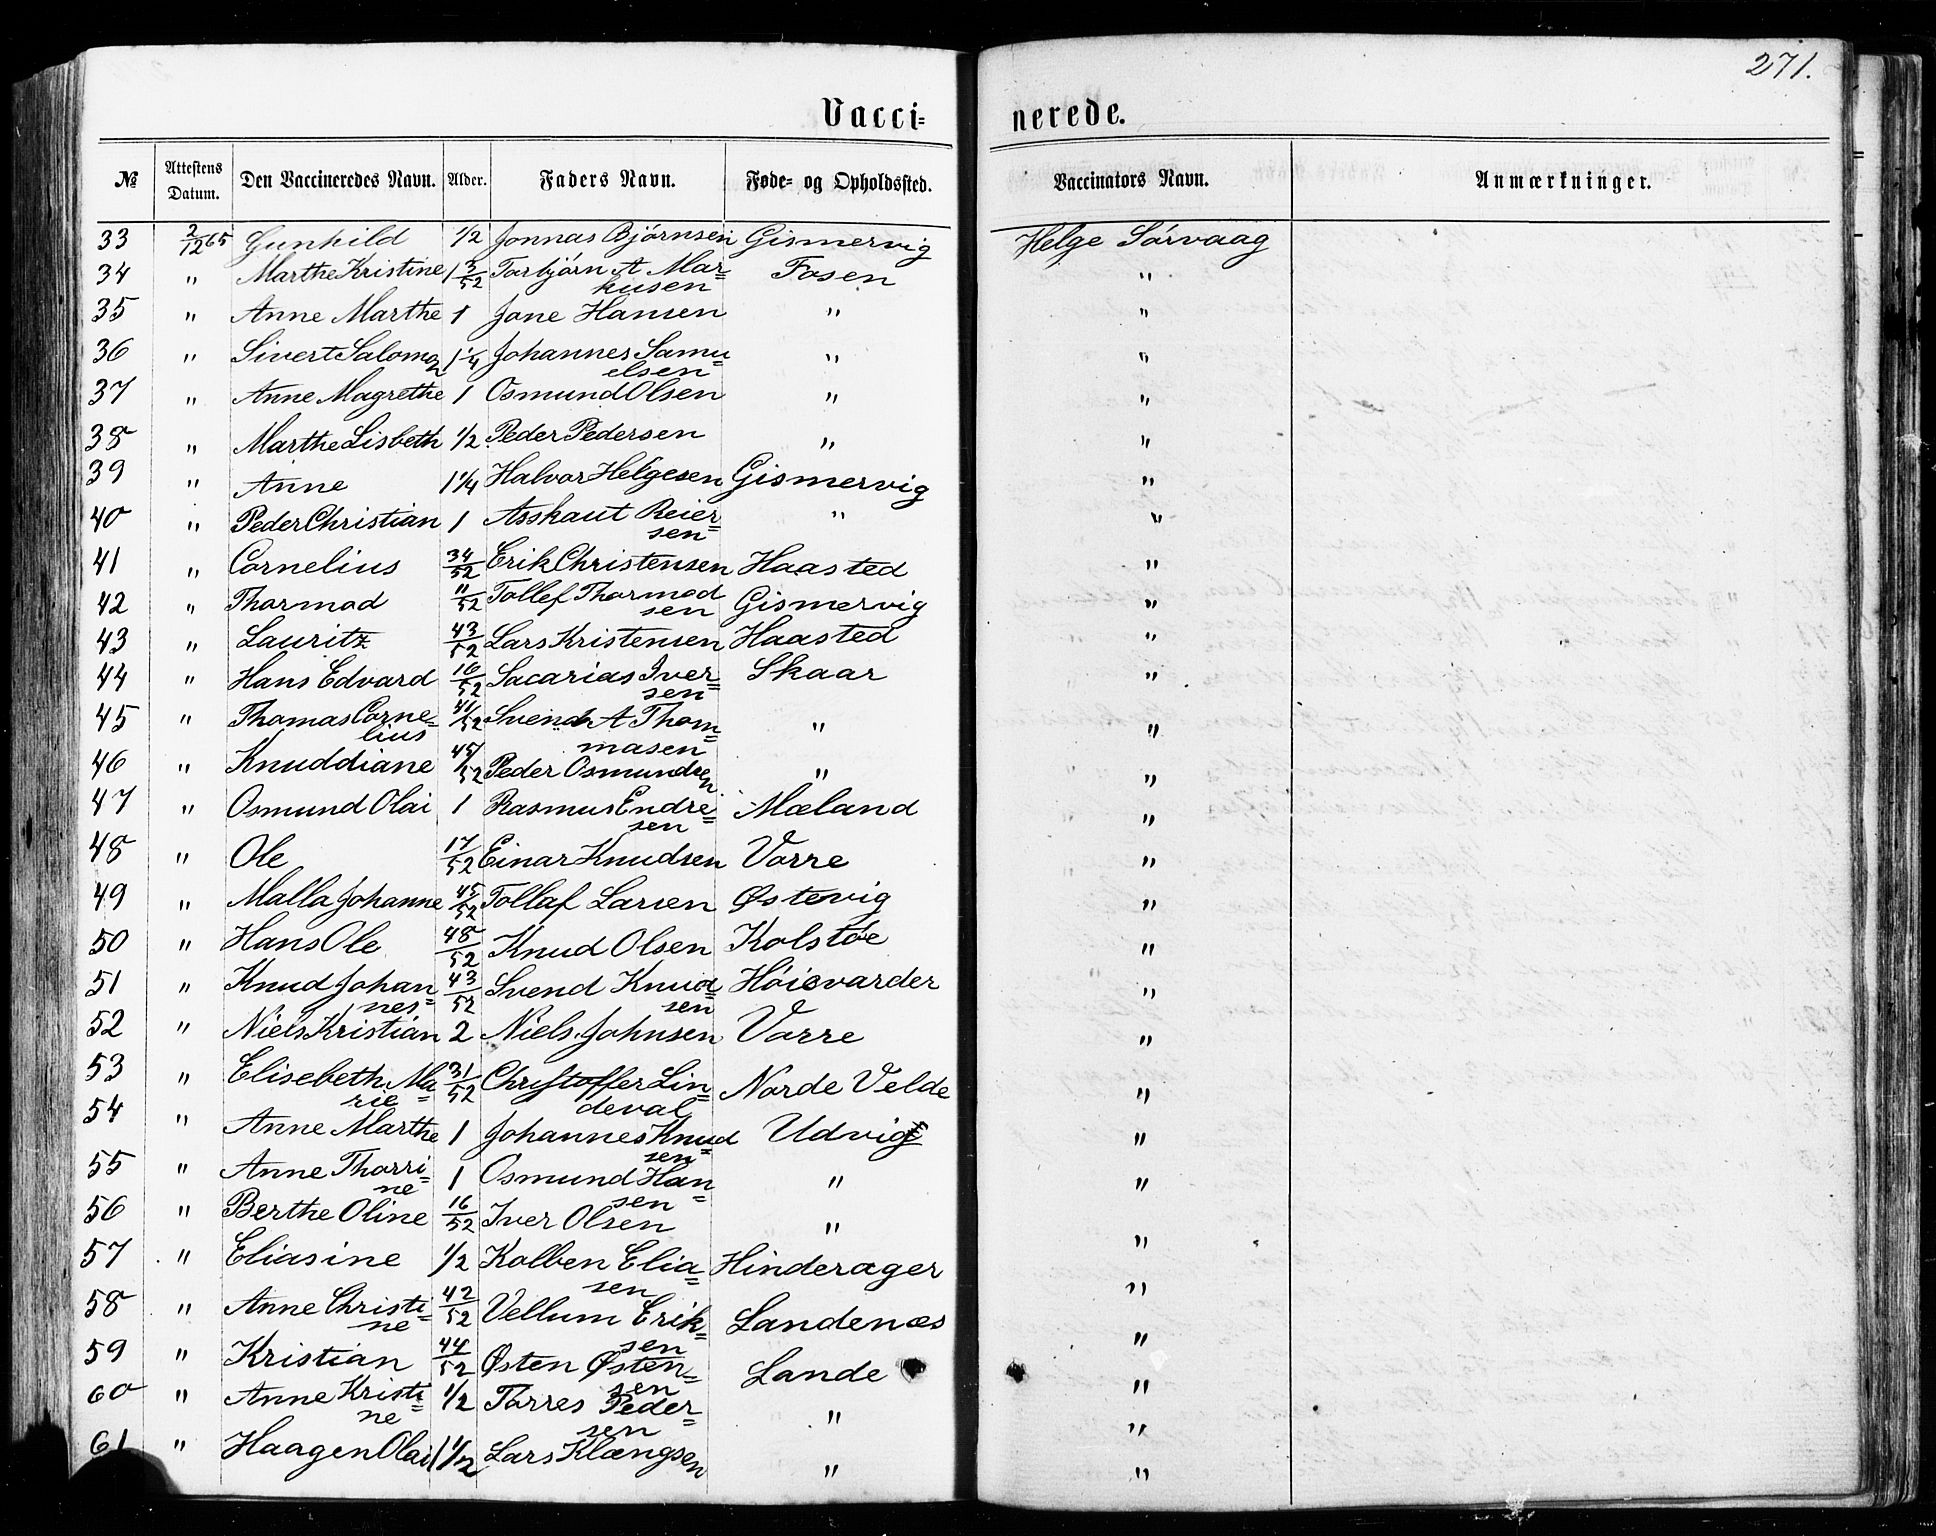 271.
Vacci= nerede.
№ Attestens Datum. Den Vaccineredes Navn. Alder. Faders Navn. Føde- og Opholdssted. Vaccinators Navn. Anmærkninger.
33 2/12 65 Gunhild 1/2 Jonnas Bjørnsen Gismervig Helge Sørvaag
34 " Marthe Kristine 1 3/52 Torbjørn A Mar= Fosen "
kusen
35 " Anne Marthe 1 Jone Hansen " "
36 " Sivert Salomon 1 1/4 Johannes Samu= " "
elsen
37 " Anne Magrethe 1 Osmund Olsen " "
38 " Marthe Lisbeth 1/2 Peder Pedersen " "
39 " Anne 1 1/4 Halvor Helgesen Gismervig "
40 " Peder Christian 1 Asskaut Reier= " "
sen
41 " Cornelius 34/52 Erik Christensen Haasted "
42 " Thormod 11/52 Tollef Thormod Gismervig "
sen
43 " Lauritz 43/52 Lars Kristensen Haasted "
44 " Hans Edvard 16/52 Sacarias Iver= Skaar "
sen
45 " Thomas Corne= 41/52 Svend A Thom= " "
lius masen
46 " Knuddiane 45/52 Peder Osmundsen " "
47 " Osmund Olai 1 Rasmus Endre= Mæland "
sen
48 " Ole 17/52 Einar Knudsen Vorre "
49 " Malla Johanne 45/52 Tollaf Larsen Østevig "
50 " Hans Ole 48/52 Knud Olsen Kolstøe "
51 " Knud Johan= 43/52 Svend Knud= Høievarder "
nes sen
52 " Niels Kristian 2 Niels Johnsen Vorre "
53 " Elisebeth Ma= 31/52 Christoffer Lin= Norde Velde "
rie deval
54 " Anne Marthe 1 Johannes Knud= Udvig "
sen
55 " Anne Thorri= 1 Osmund Han= " "
ne sen
56 " Berthe Oline 16/52 Iver Olsen " "
57 " Eliasine 1/2 Kolben Elia= Hinderager "
sen
58 " Anne Christi= 42/52 Vellum Erik= Landenæs "
ne sen
59 " Kristian 44/52 Østen Østen= Lande "
sen
60 " Anne Kristi= 1/2 Torres Peder= " "
ne sen
61 " Haagen Olai 1 1/2 Lars Klængsen " "